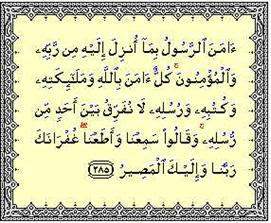 ءَامَنَ ٱلرَّسُولُ بِمَآ أُنزِلَ إِلَيْهِ مِن رَّبِّهِۦ
وَٱلْمُؤْمِنُونَۚ كُلٌّ ءَامَنَ بِٱللَّهِ وَمَلَٰٓئِكَتِهِۦ
وَكُتُبِهِۦ وَرُسُلِهِۦ لَا نُفَرِّقُ بَيْنَ أَحَدٍ مِّن
رُّسُلِهِۦۚ وَقَالُوا۟ سَمِعْنَا وَأَطَعْنَاۖ غُفْرَانَكَ
رَبَّنَا وَإِلَيْكَ ٱلْمَصِيرُ ٢٨٥